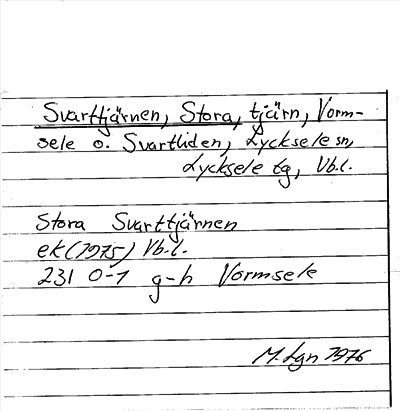 Svarttjärnen, Stora, tjärn, Vorm-
sele o. Svartliden, Lycksele sn,
Lycksele tg, Vb.l.
Stora Svarttjärnen
ek (1975) Vb.l.
231 0-1 g-h Vormsele
M. Lgn 1976